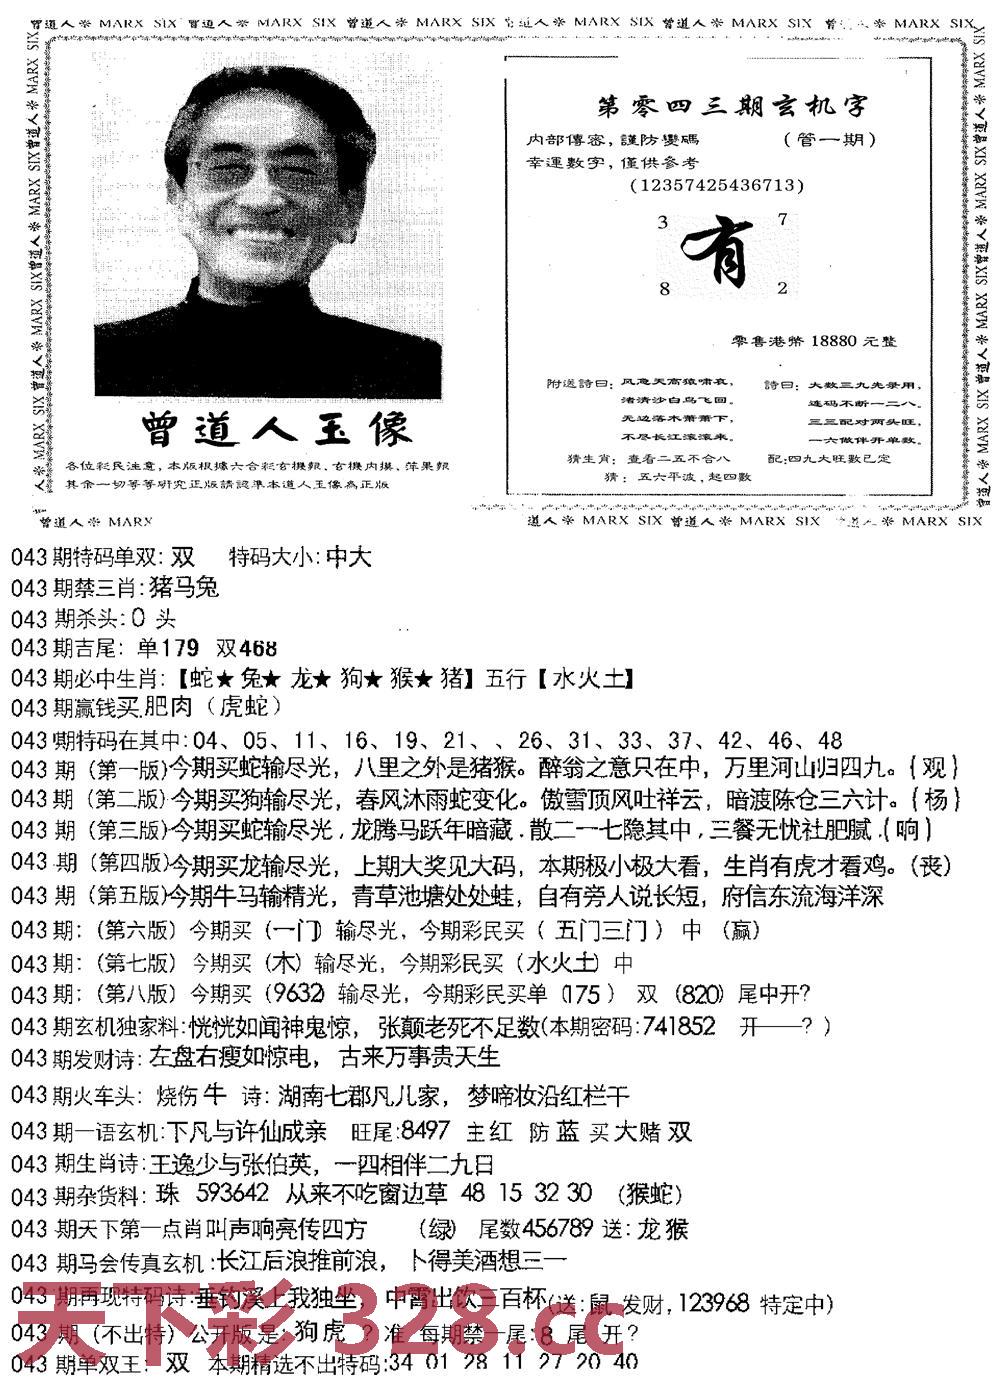 曾道人※ MARX SIX 曾道人※ MARX SIX 曾道人※ MARX SIX 曾道人※ MARX SIX 曾道人※ MARX SIX 曾道人※ MARX SIX
第零四三期玄机字
内部傳密，謹防變碼 （管一期）
幸運數字，僅供參考
(12357425436713)
3 7
有
8 2
零售港幣 18880 元整
附送詩曰：风急天高猿啸哀，
渚清沙白鸟飞回。
无边落木萧萧下，
不尽长江滚滚来。
詩曰：大数三九先录用，
连码不断一二八。
三三配对两头旺，
一六做伴开单数。
猜生肖：查看二五不合八 配:四九大旺數已定
猜：五六平波，起四數
曾道人玉像
各位彩民注意，本版根據六合彩玄機報、玄機内摸、萍果報
其余一切等等研究正版請認準本道人玉像為正版
曾道人※ MARX
道人※ MARX SIX 曾道人※ MARX SIX 曾道人※ MARX SIX
043 期特码单双: 双 特码大小:中大
043 期禁三肖:猪马兔
043 期杀头:0 头
043 期吉尾: 单179 双468
043 期必中生肖:【蛇★兔★龙★狗★猴★猪】五行【水火土】
043 期赢钱买.肥肉（虎蛇）
043 期特码在其中:04、05、11、16、19、21、、26、31、33、37、42、46、48
043 期（第一版)今期买蛇输尽光，八里之外是猪猴。醉翁之意只在中，万里河山归四九。{观}
043 期（第二版)今期买狗输尽光，春风沐雨蛇变化。傲雪顶风吐祥云，暗渡陈仓三六计。{杨}
043 期（第三版)今期买蛇输尽光，龙腾马跃年暗藏．散二一七隐其中，三餐无忧社肥腻．{响}
043 期（第四版)今期买龙输尽光，上期大奖见大码，本期极小极大看，生肖有虎才看鸡。(丧)
043 期（第五版)今期牛马输精光，青草池塘处处蛙，自有旁人说长短，府信东流海洋深
043 期:（第六版）今期买（一门）输尽光，今期彩民买（ 五门三门 ） 中 （赢）
043 期:（第七版）今期买（木）输尽光，今期彩民买（水火土）中
043 期:（第八版）今期买（9632）输尽光，今期彩民买单（175 ） 双 （820）尾中开?
043 期玄机独家料:恍恍如闻神鬼惊， 张颠老死不足数(本期密码:741852 开——? )
043 期发财诗:左盘右瘦如惊电， 古来万事贵天生
043 期火车头: 烧伤 牛 诗: 湖南七郡凡几家， 梦啼妆沿红栏干
043 期一语玄机:下凡与许仙成亲 旺尾:8497 主 红 防 蓝 买 大赌 双
043 期生肖诗:王逸少与张伯英，一四相伴二九日
043 期杂货料: 珠 593642 从来不吃窗边草 48 15 32 30 （猴蛇）
043 期天下第一点肖叫声响亮传四方 （绿） 尾数456789 送:龙猴
043 期马会传真玄机:长江后浪推前浪， 卜得美酒想三一
043 期再现特码诗:垂钓溪上我独坐， 中霄出饮三百杯(送:鼠 发财,123968 特定中)
043 期（不出特）公开版 是: 狗虎 ? 准 每期禁一尾:8 尾 开?
043 期单双王: 双 本期精选不出特码:34 01 28 11 27 20 40
天下彩 328.cc